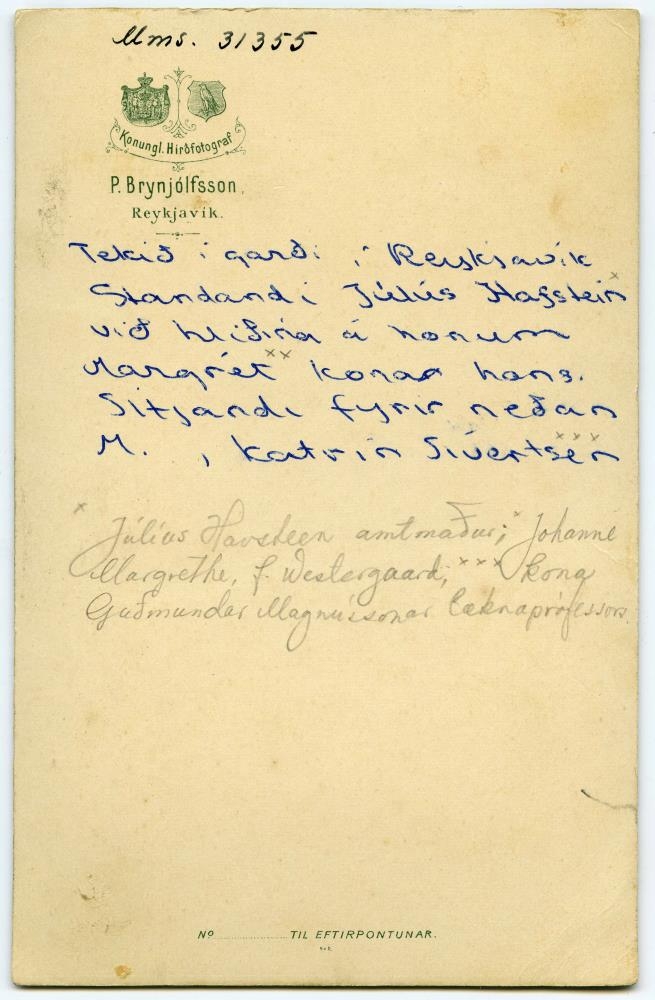 Mms. 31355
Konungl. Hirðfotograf
P. Brynjólfsson.
Reykjavík.
Tekið í garði í Reykjavík
Standandi Júlús Hafstein x
við hliðina á honum
Margrét xx konar hans.
Sitjandi fyrir neðan
M. , Katrín Sívertsen xxx
x Júlíus Havsteen amtmaður; xx Johanne
Margrethe, f. Westergaard; xxx kona
Guðmundar Magnússonar læknaprófessors.
No ............ TIL EFTIRPONTUNAR.